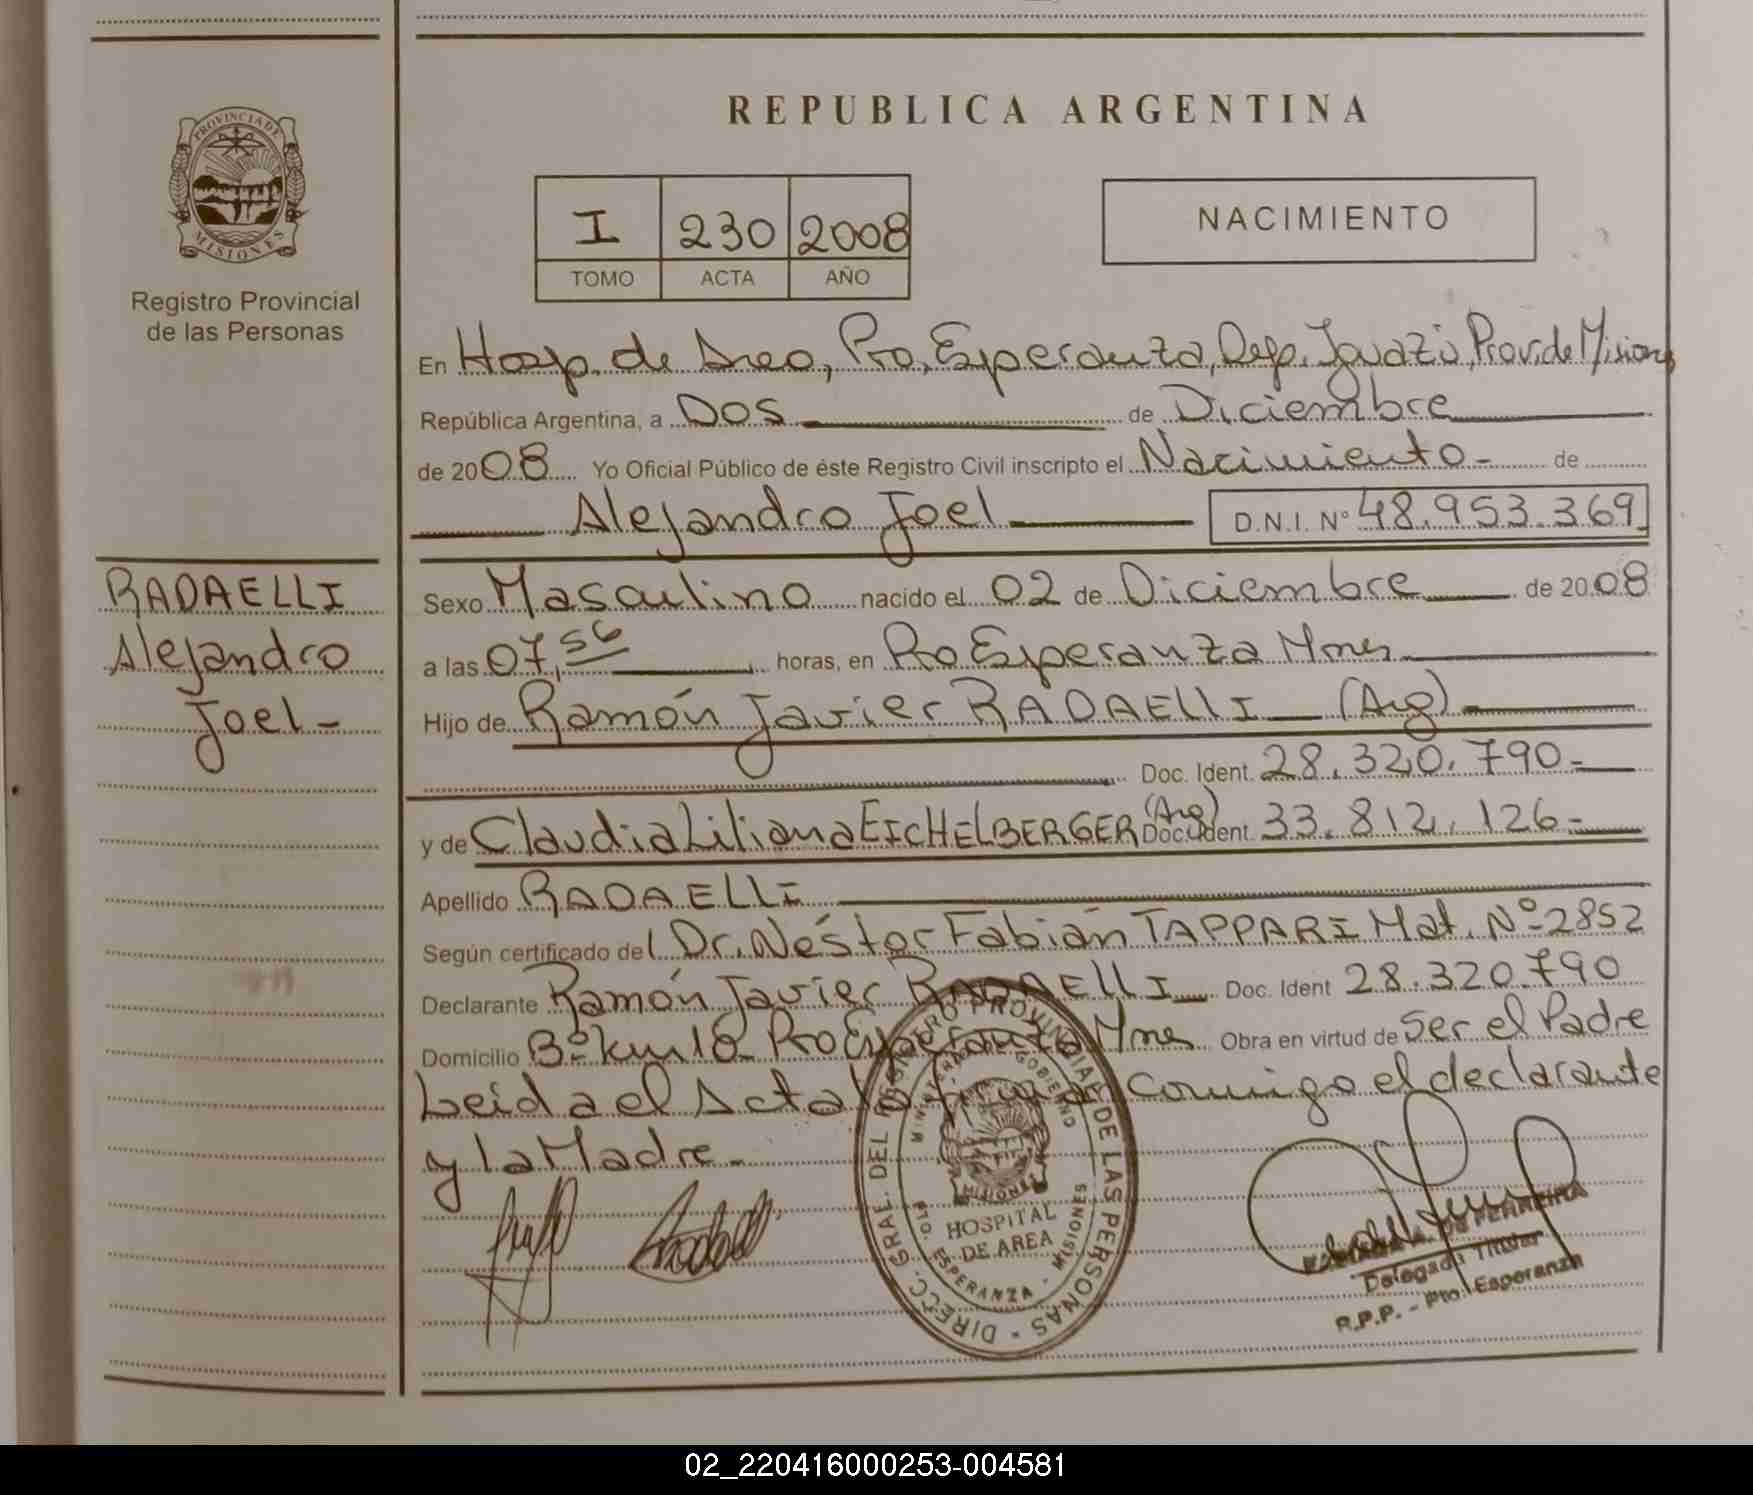 PROVINCIA DE
MISIONES
Registro Provincial
de las Personas
RADAELLI
Alejandro
Joel -
REPUBLICA ARGENTINA
I 230 2008
TOMO ACTA AÑO
NACIMIENTO
En Hosp. de Area, Pto. Esperanza, Dep. Iguazú, Prov. de Misiones
República Argentina, a Dos de Diciembre
de 2008 Yo Oficial Público de éste Registro Civil inscripto el Nacimiento - de
Alejandro Joel D.N.I. Nº 48.953.369
Sexo Masculino nacido el 02 de Diciembre de 2008
a las 07,56 horas, en Pto Esperanza Mnes
Hijo de Ramón Javier RADAELLI (Arg)
Doc. Ident. 28.320.790-
y de Claudia Liliana EICHELBERGER (Arg) Doc. Ident. 33.812.126-
Apellido RADAELLI
Según certificado del Dr. Néstor Fabián TAPPARI Mat. Nº 2852
Declarante Ramón Javier RADAELLI Doc. Ident 28.320.790
Domicilio Bº km 18 Pto Esperanza Mnes Obra en virtud de Ser el Padre
Leida el Acta la firma Conmigo el declarante
y la Madre -
DIRECC. GRAL. DEL REGISTRO PROVINCIAL DE LAS PERSONAS
MINISTERIO DE GOBIERNO
MISIONES
HOSPITAL
DE AREA
PTO. ESPERANZA - MISIONES
DE FERREIRA
Delegada Titular
R.P.P. - Pto. Esperanza
02_220416000253-004581